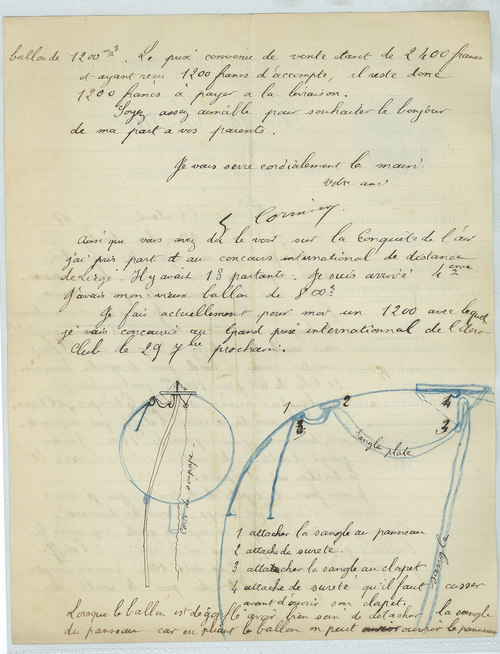 ballon de 1200 m3. Le prix convenu de vente étant de 2400 francs
et ayant reçu 1200 francs d'accompte, il reste donc
1200 francs à payer a la livraison.
Soyez assez aimable pour souhaiter le bonjour
de ma part a vos parents.
Je vous serre cordialement la main
Votre ami
Ainsi que vous avez dû le voir sur la Conquête de l'air
j'ai pris part et au concours international de distance
de Liège. Il y avait 13 partants. Je suis arrivé 4 eme
J'avais mon vieux ballon de 800 3
Je fais actuellement pour moi un 1200 avec lequel
je vais concourir au Grand prix international de l'Aero-
Club le 29 7bre prochain.
1 2 4
3 3
Sangle plate
Corde de soupape
Sangle
1 attacher la sangle au panneau
2 attache de sureté.
3 attatcher la sangle au clapet
4 attache de sureté qu'il faut casser
avant d'ouvrir son clapet.
Lorsque le ballon est dégonflé avoir bien soin de détacher la sangle
du panneau car en pliant le ballon on peut ouvrir le panneau